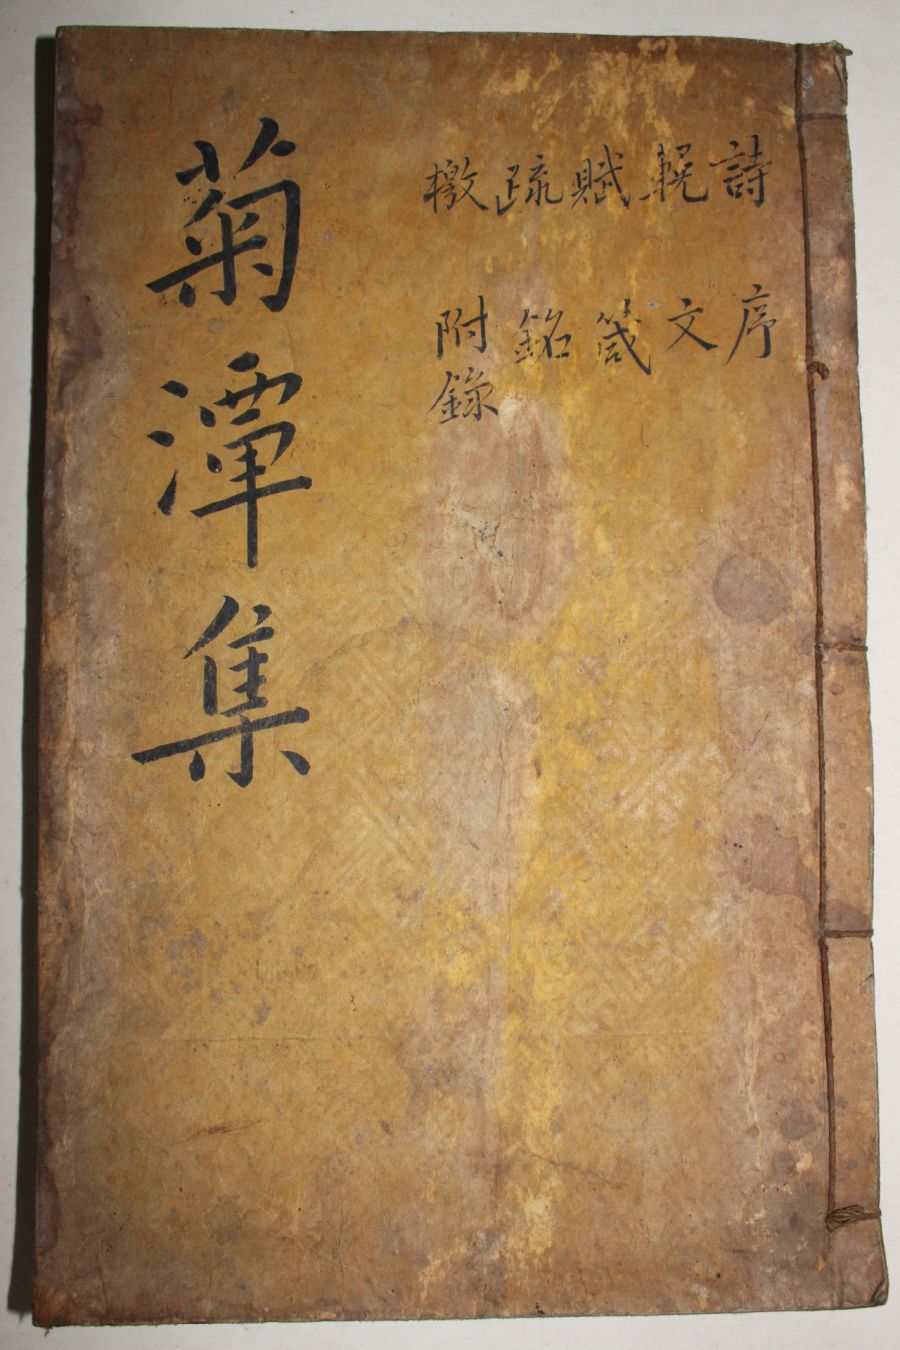 菊潭集
詩 輓 賦 疏 檄
序 文 箴 銘 附錄